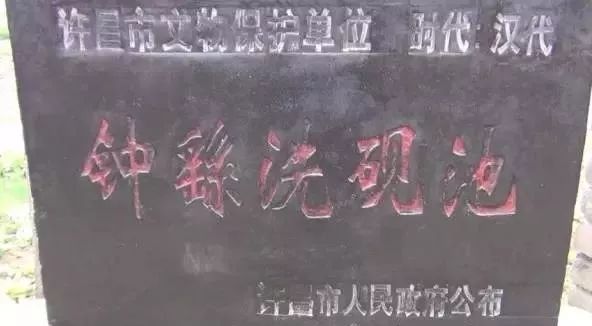 许昌市文物保护单位 时代:汉代
钟繇洗砚池
许昌市人民政府公布